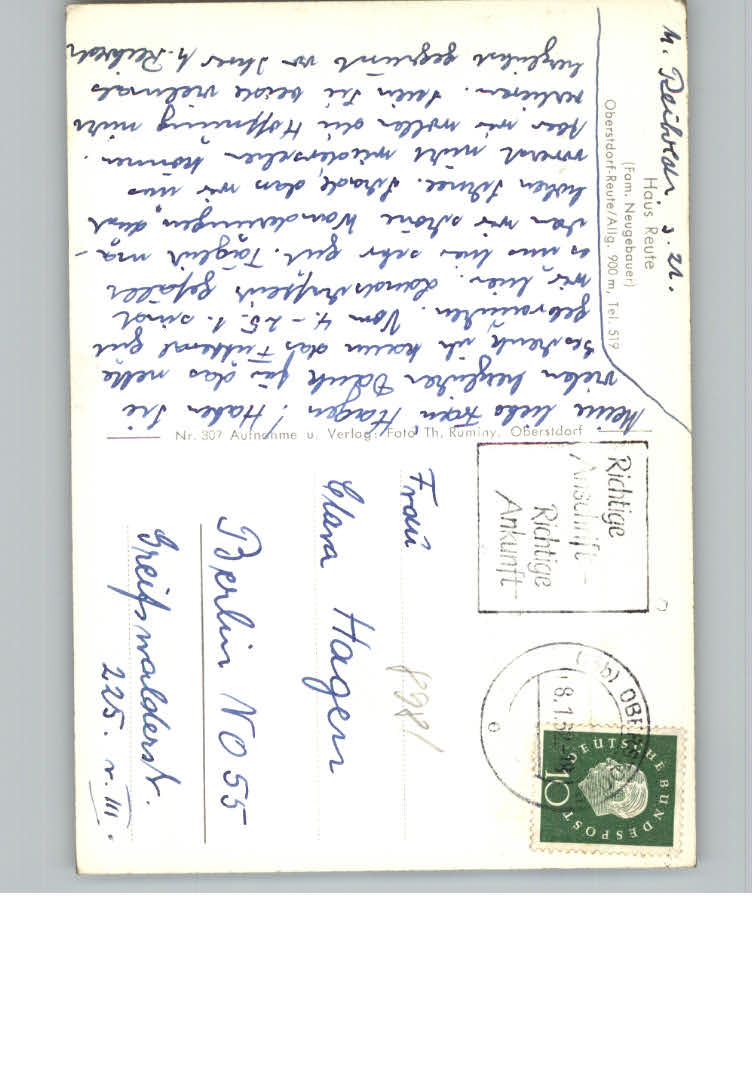 M. Reiheder, z. Zt.
Haus Reute
(Fam. Neugebauer)
Oberstdorf-Reute/Allg. 900 m, Tel. 519
Meine liebe Frau Hagen! Haben Sie
vielen herzlichen Dank für das nette
Geschenk, ich kann das Futteral gut
gebrauchen. Vom 4. - 25. 1. sind
wir hier. Landschaftlich gefällt
es uns hier sehr gut. Täglich ma-
chen wir schöne Wanderungen durch
hohen Schnee. Schade, dass wir uns
vorerst nicht wiedersehen können.
Aber wir wollen die Hoffnung nicht
verlieren. Seien Sie beide vielmals
herzlichst gegrüsst von Ihrer M. Reiheder
Nr. 307 Aufnahme u. Verlag: Foto Th. Ruminy, Oberstdorf
Richtige
Anschrift -
Richtige
Ankunft
8.1.6
e
DEUTSCHE BUNDESPOST
10
Frau
Clara Hagen
Berlin NO 55
Greifswalderst.
225. v. III.
8981